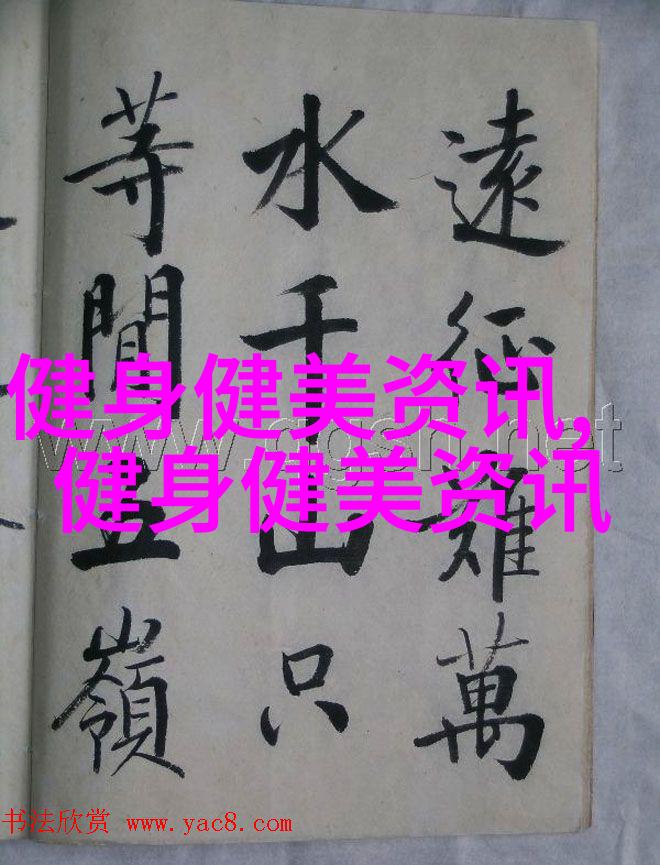 遠征難萬
水千山只
等閒五嶺
健身健美资讯,
健身健美资讯
书法欣赏 www.yac8.com